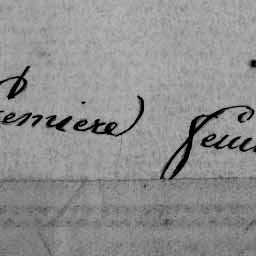 remiere) feui